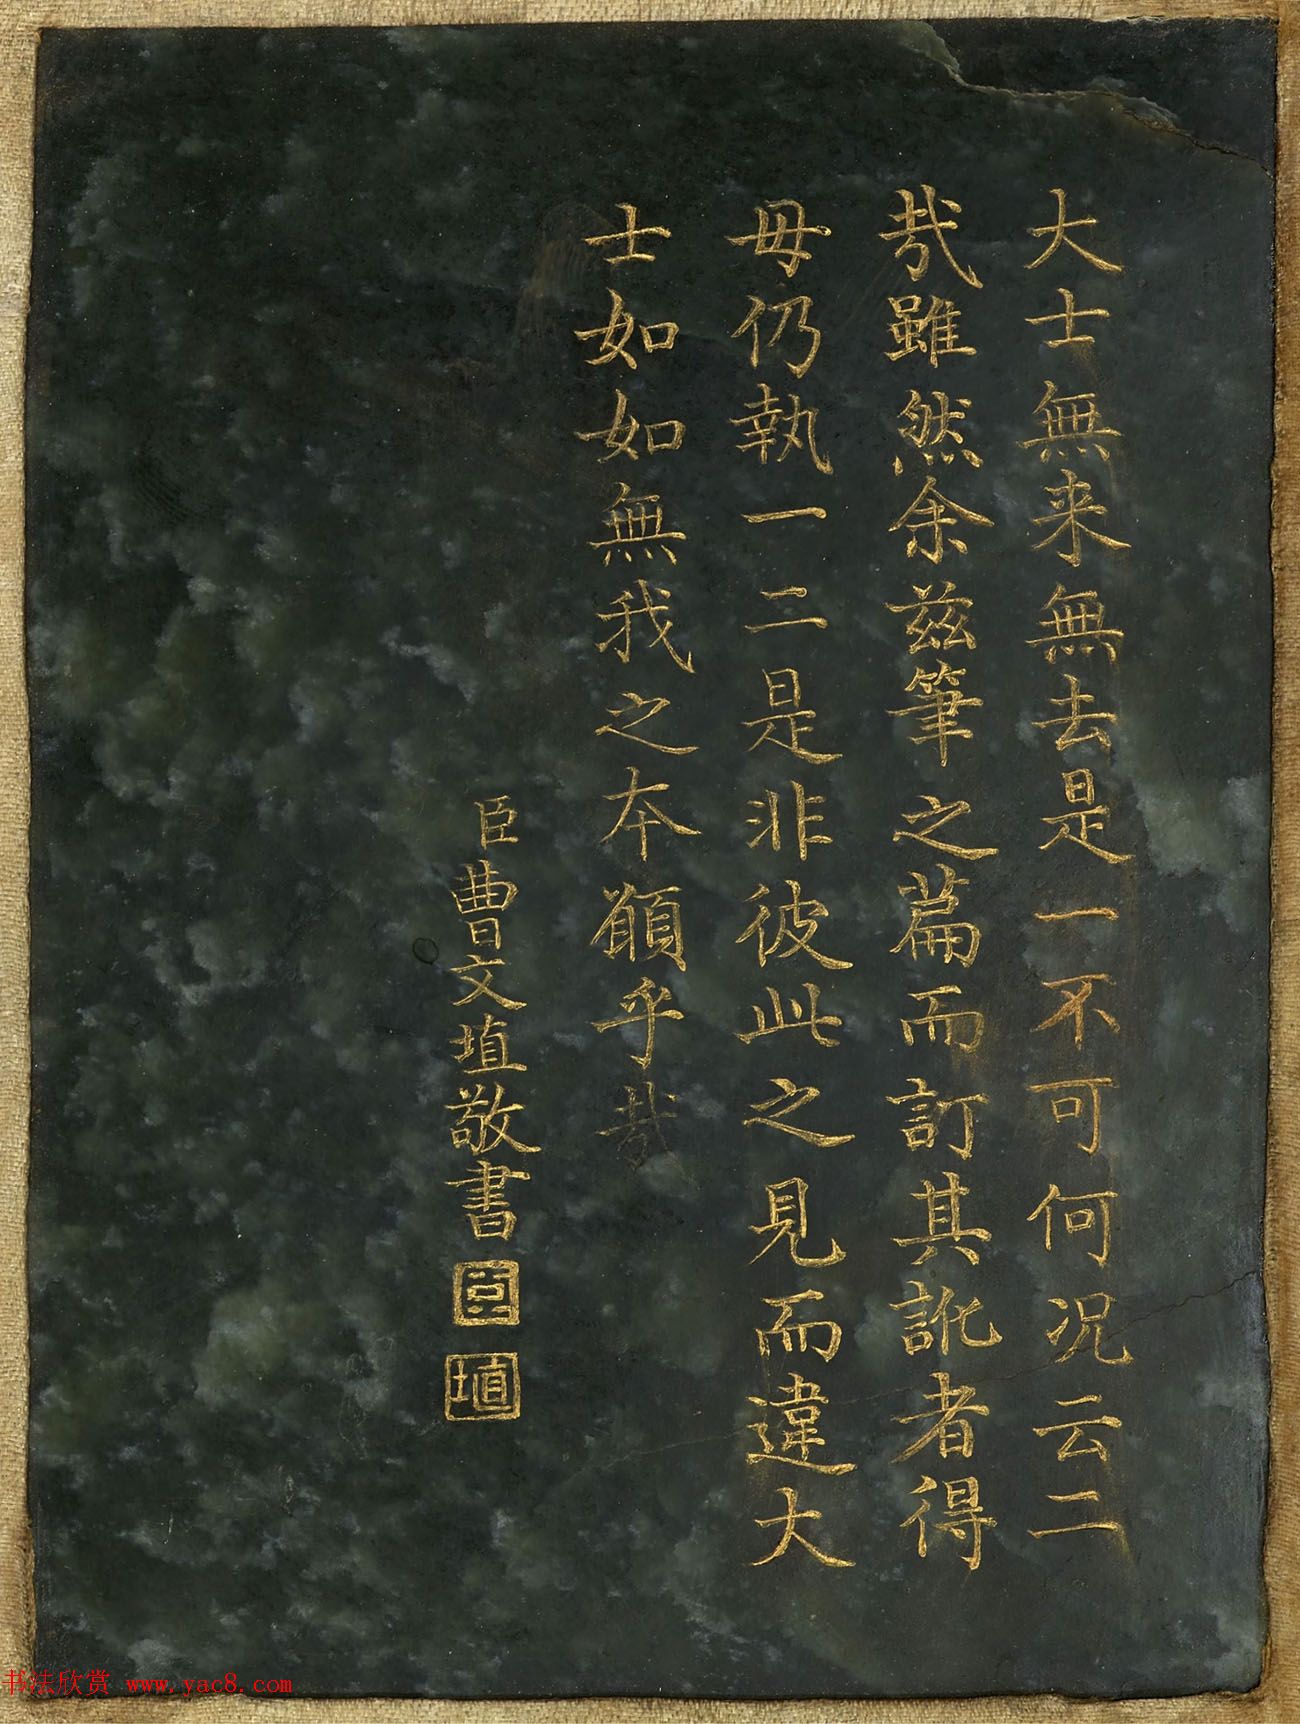 大士無来無去是一不可何况云二
哉雖然余兹筆之篇而訂其訛者得
毋仍執一二是非彼此之見而違大
士如如無我之本願乎哉
臣曹文埴敬書
臣
埴
书法欣赏 www.yac8.com